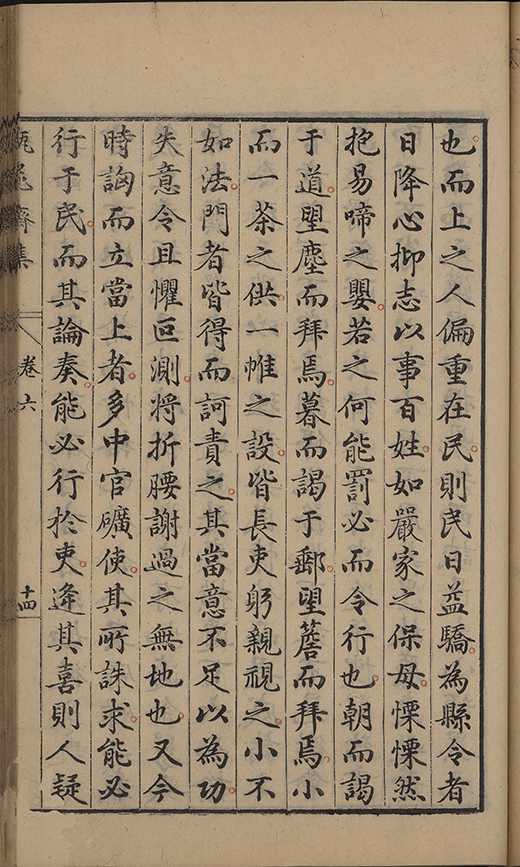 也而上之人偏重在民則民日益驕為縣令者
日降心抑志以事百姓如嚴家之保母慄慄然
抱易啼之嬰若之何能罰必而令行也朝而謁
于道望塵而拜焉暮而謁于郵望簷而拜焉小
而一茶之供一帷之設皆長吏躬親視之小不
如法門者皆得而訶責之其當意不足以為功
失意令且懼叵測將折腰謝過之無地也又今
時詾而立當上者多中官礦使其所誅求能必
行于民而其論奏能必行於吏逢其喜則人疑
瓶花齋集
卷六
十四